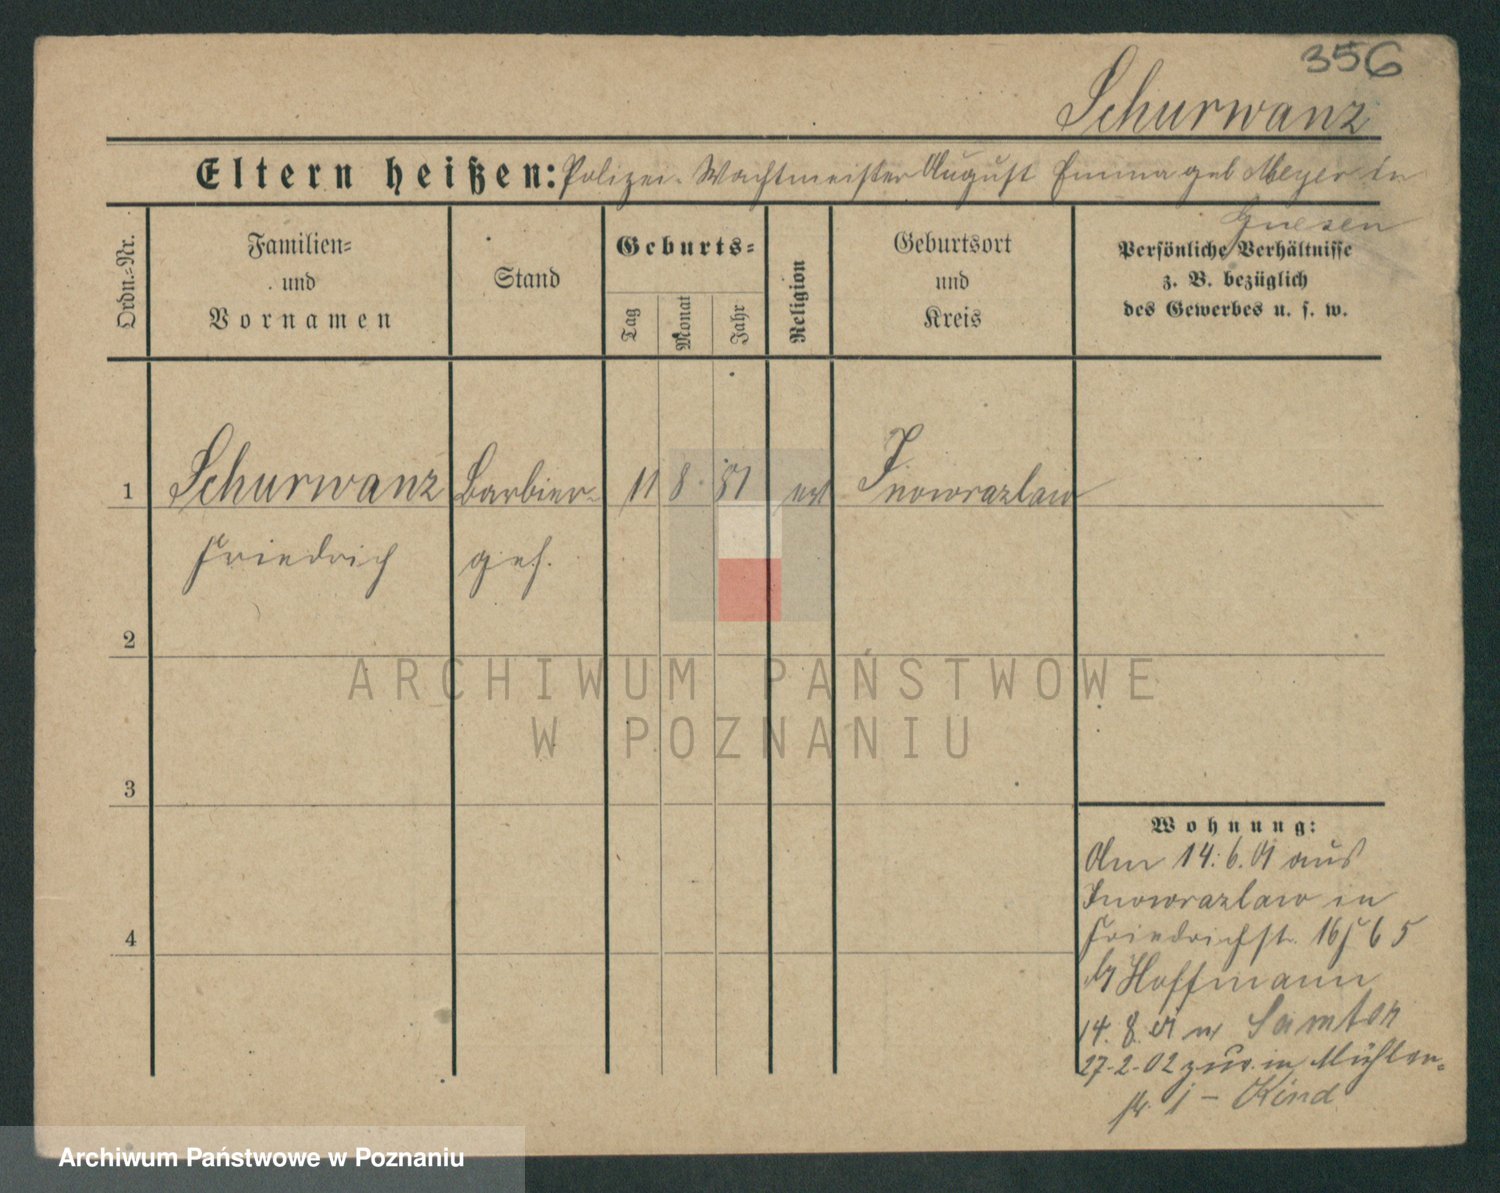 356
Schurwanz
Eltern heißen: Polizei-Wachtmeister August Emma geb Meyer in
Gnesen
Ordn.-Nr.
Familien-
und
Vornamen
Stand
Geburts-
Tag
Monat
Jahr
Religion
Geburtsort
und
Kreis
Persönliche Verhältnisse
z. B. bezüglich
des Gewerbes u. s. w.
1 Schurwanz Barbier- 11 8. 81 ev Inowrazlaw
Friedrich geh.
2
3
4
Wohnung:
Am 14.6.01 aus
Inowrazlaw in
Friedrichst. 16 65
Hoffmann
14. 8. 01 n Samter
27.2.02 zur. in Mühlen-
str. - Kind
ARCHIWUM PAŃSTWOWE
W POZNANIU
Archiwum Państwowe w Poznaniu